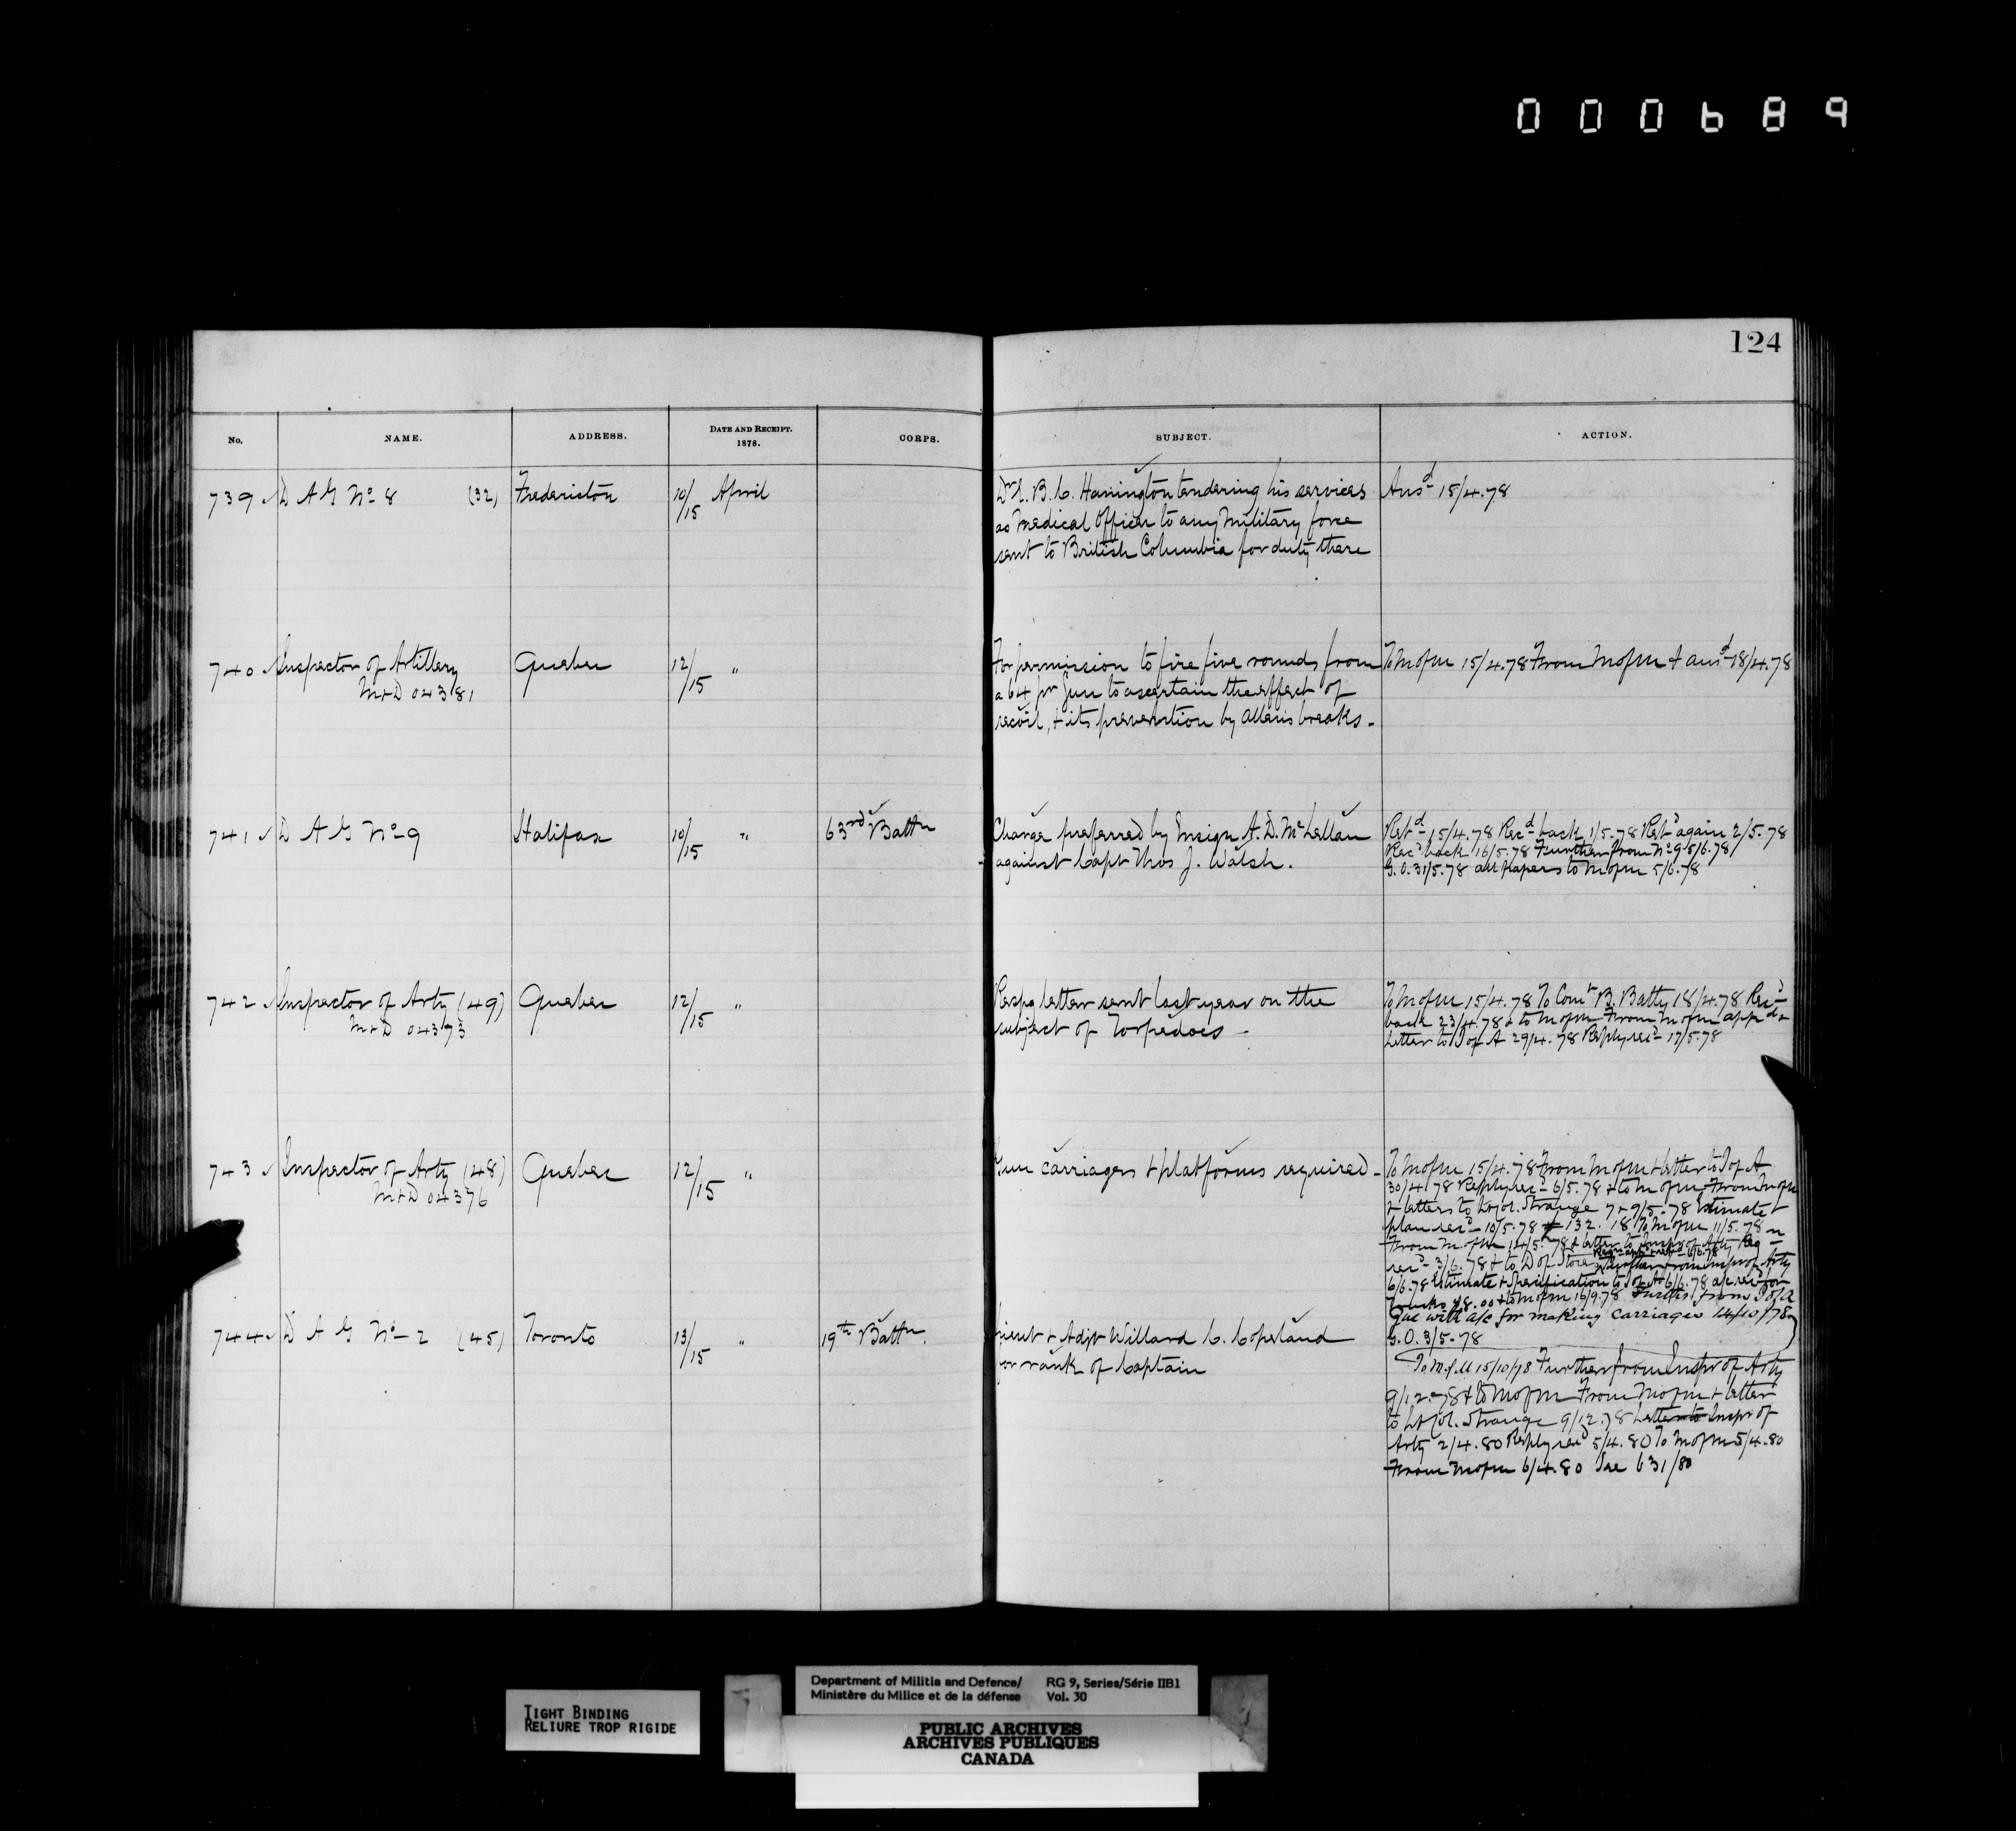 000689
124
No. NAME. ADDRESS. DATE AND RECEIPT. 1878. CORPS. SUBJECT. ACTION.
739 D A G No 8 (32) Fredericton 10/15 April Dr E. B. C. Hanington tendering his services Ansd 15/4.78
as Medical Officer to any Military force
sent to British Columbia for duty there
740 Inspector of Artillery Quebec 12/15 " For permission to fire five rounds from To M of M 15/4.78 From M of M & ansd 18/4.78
M&D 04381 a 64 pr Gun to ascertain the effect of
recoil, & its prevention by Allen's breaks -
741 D A G No 9 Halifax 10/15 " 63rd Battn Charge preferred by Ensign A. D. McLellan Retd 15/4.78 Recd back 1/5.78 Retd again 2/5.78
against Capt Thos J. Walsh. Recd back 16/5.78 Further from No 9 5/6.78
G.O. 31/5.78 all papers to M of M 5/6.78
742 Inspector of Arty (49) Quebec 12/15 " Respg letter sent last year on the To M of M 15/4.78 To Comt B. Batty 18/4.78 Recd
M&D 04373 subject of Torpedoes - back 23/4.78 & to M of M From M of M appd &
Letter to I of A 29/4.78 Reply recd 17/5.78
743 Inspector of Arty (48) Quebec 12/15 " Gun carriages & platforms required - To M of M 15/4.78 From M of M & letter to I of A
M&D 04376 30/4.78 Reply recd 6/5.78 & to M of M From M of M
& letters to Lt Col. Strange 7 & 9/5.78 Estimate &
plan recd 10/5.78 132.18 To M of M 11/5.78
From M of M 14/5.78 & letter to Inspr of Arty Reqn
recd 3/6.78 & to D of Stores Further from Inspr of Arty
6/6.78 Estimate & Specification to I of A 6/6.78 a/c recd for
48.00 & to M of M 16/9.78 Further from I of A
Que with a/c for making carriages 14/10/78
744 D A G No 2 (45) Toronto 13/15 " 19th Battn Lieut & Adjt Willard C. Copeland G.O. 3/5.78
for rank of Captain
To M of M 15/10/78 Further from Inspr of Arty
9/12.78 & to M of M From M of M & letter
to Lt Col. Strange 9/12.78 Letter to Inspr of
Arty 2/4.80 Reply recd 5/4.80 To M of M 5/4.80
From M of M 6/4.80 See 631/80
TIGHT BINDING
RELIURE TROP RIGIDE
Department of Militia and Defence/ RG 9, Series/Série IIB1
Ministère du Milice et de la défense Vol. 30
PUBLIC ARCHIVES
ARCHIVES PUBLIQUES
CANADA